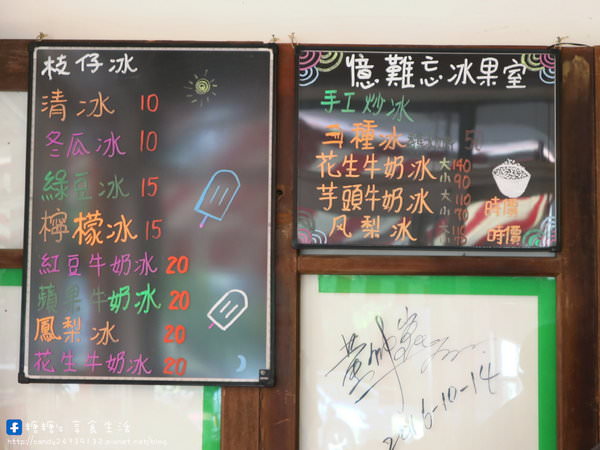 枝仔冰
清冰 10
冬瓜冰 10
綠豆冰 15
檸檬冰 15
紅豆牛奶冰 20
蘋果牛奶冰 20
鳳梨冰 20
花生牛奶冰 20
憶難忘冰果室
手工炒冰
三種冰 50
花生牛奶冰 大140 小90
芋頭牛奶冰 大110 小70
鳳梨冰 大110 小
時價
時價
2016-10-14
糖糖's 享食生活
http://candy24939132.pixnet.net/blog